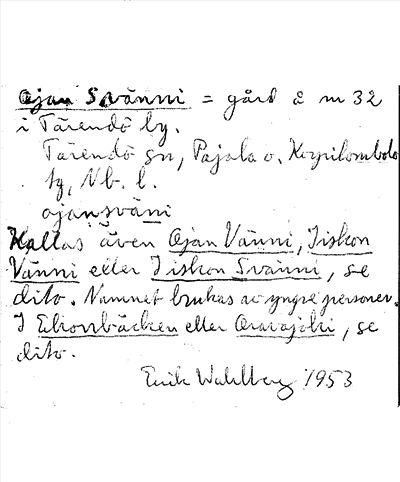 Ojan Svänni = gård å nr 32
i Tärendö by.
Tärendö sn, Pajala o. Korpilombolo
tg, Nb. l.
ojansväni
Kallas även Ojan Vänni, Iiskon
Vänni eller Iiskon Svänni, se
dito. Namnet brukas av yngre personer.
I Ekorrbäcken eller Oravajoki, se
dito.
Erik Wahlberg 1953